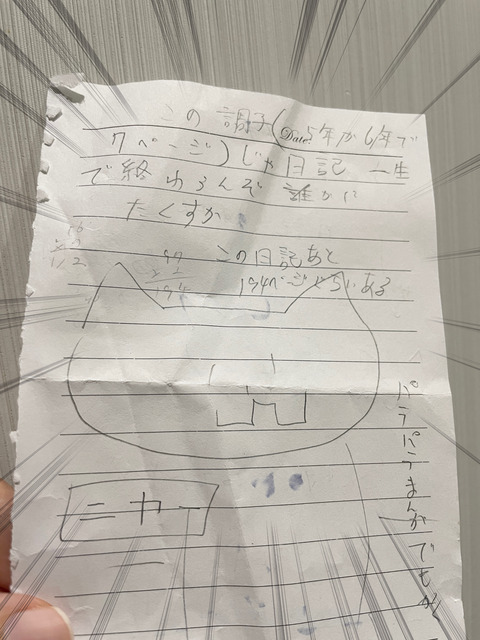 この調子(5年か6年で
Date
7ページ)じゃ日記一生
で終わらんぞ 誰かに
たくすか
この日記あと
194ページくらいある
97
194
ニャー
パラパラまんがでも